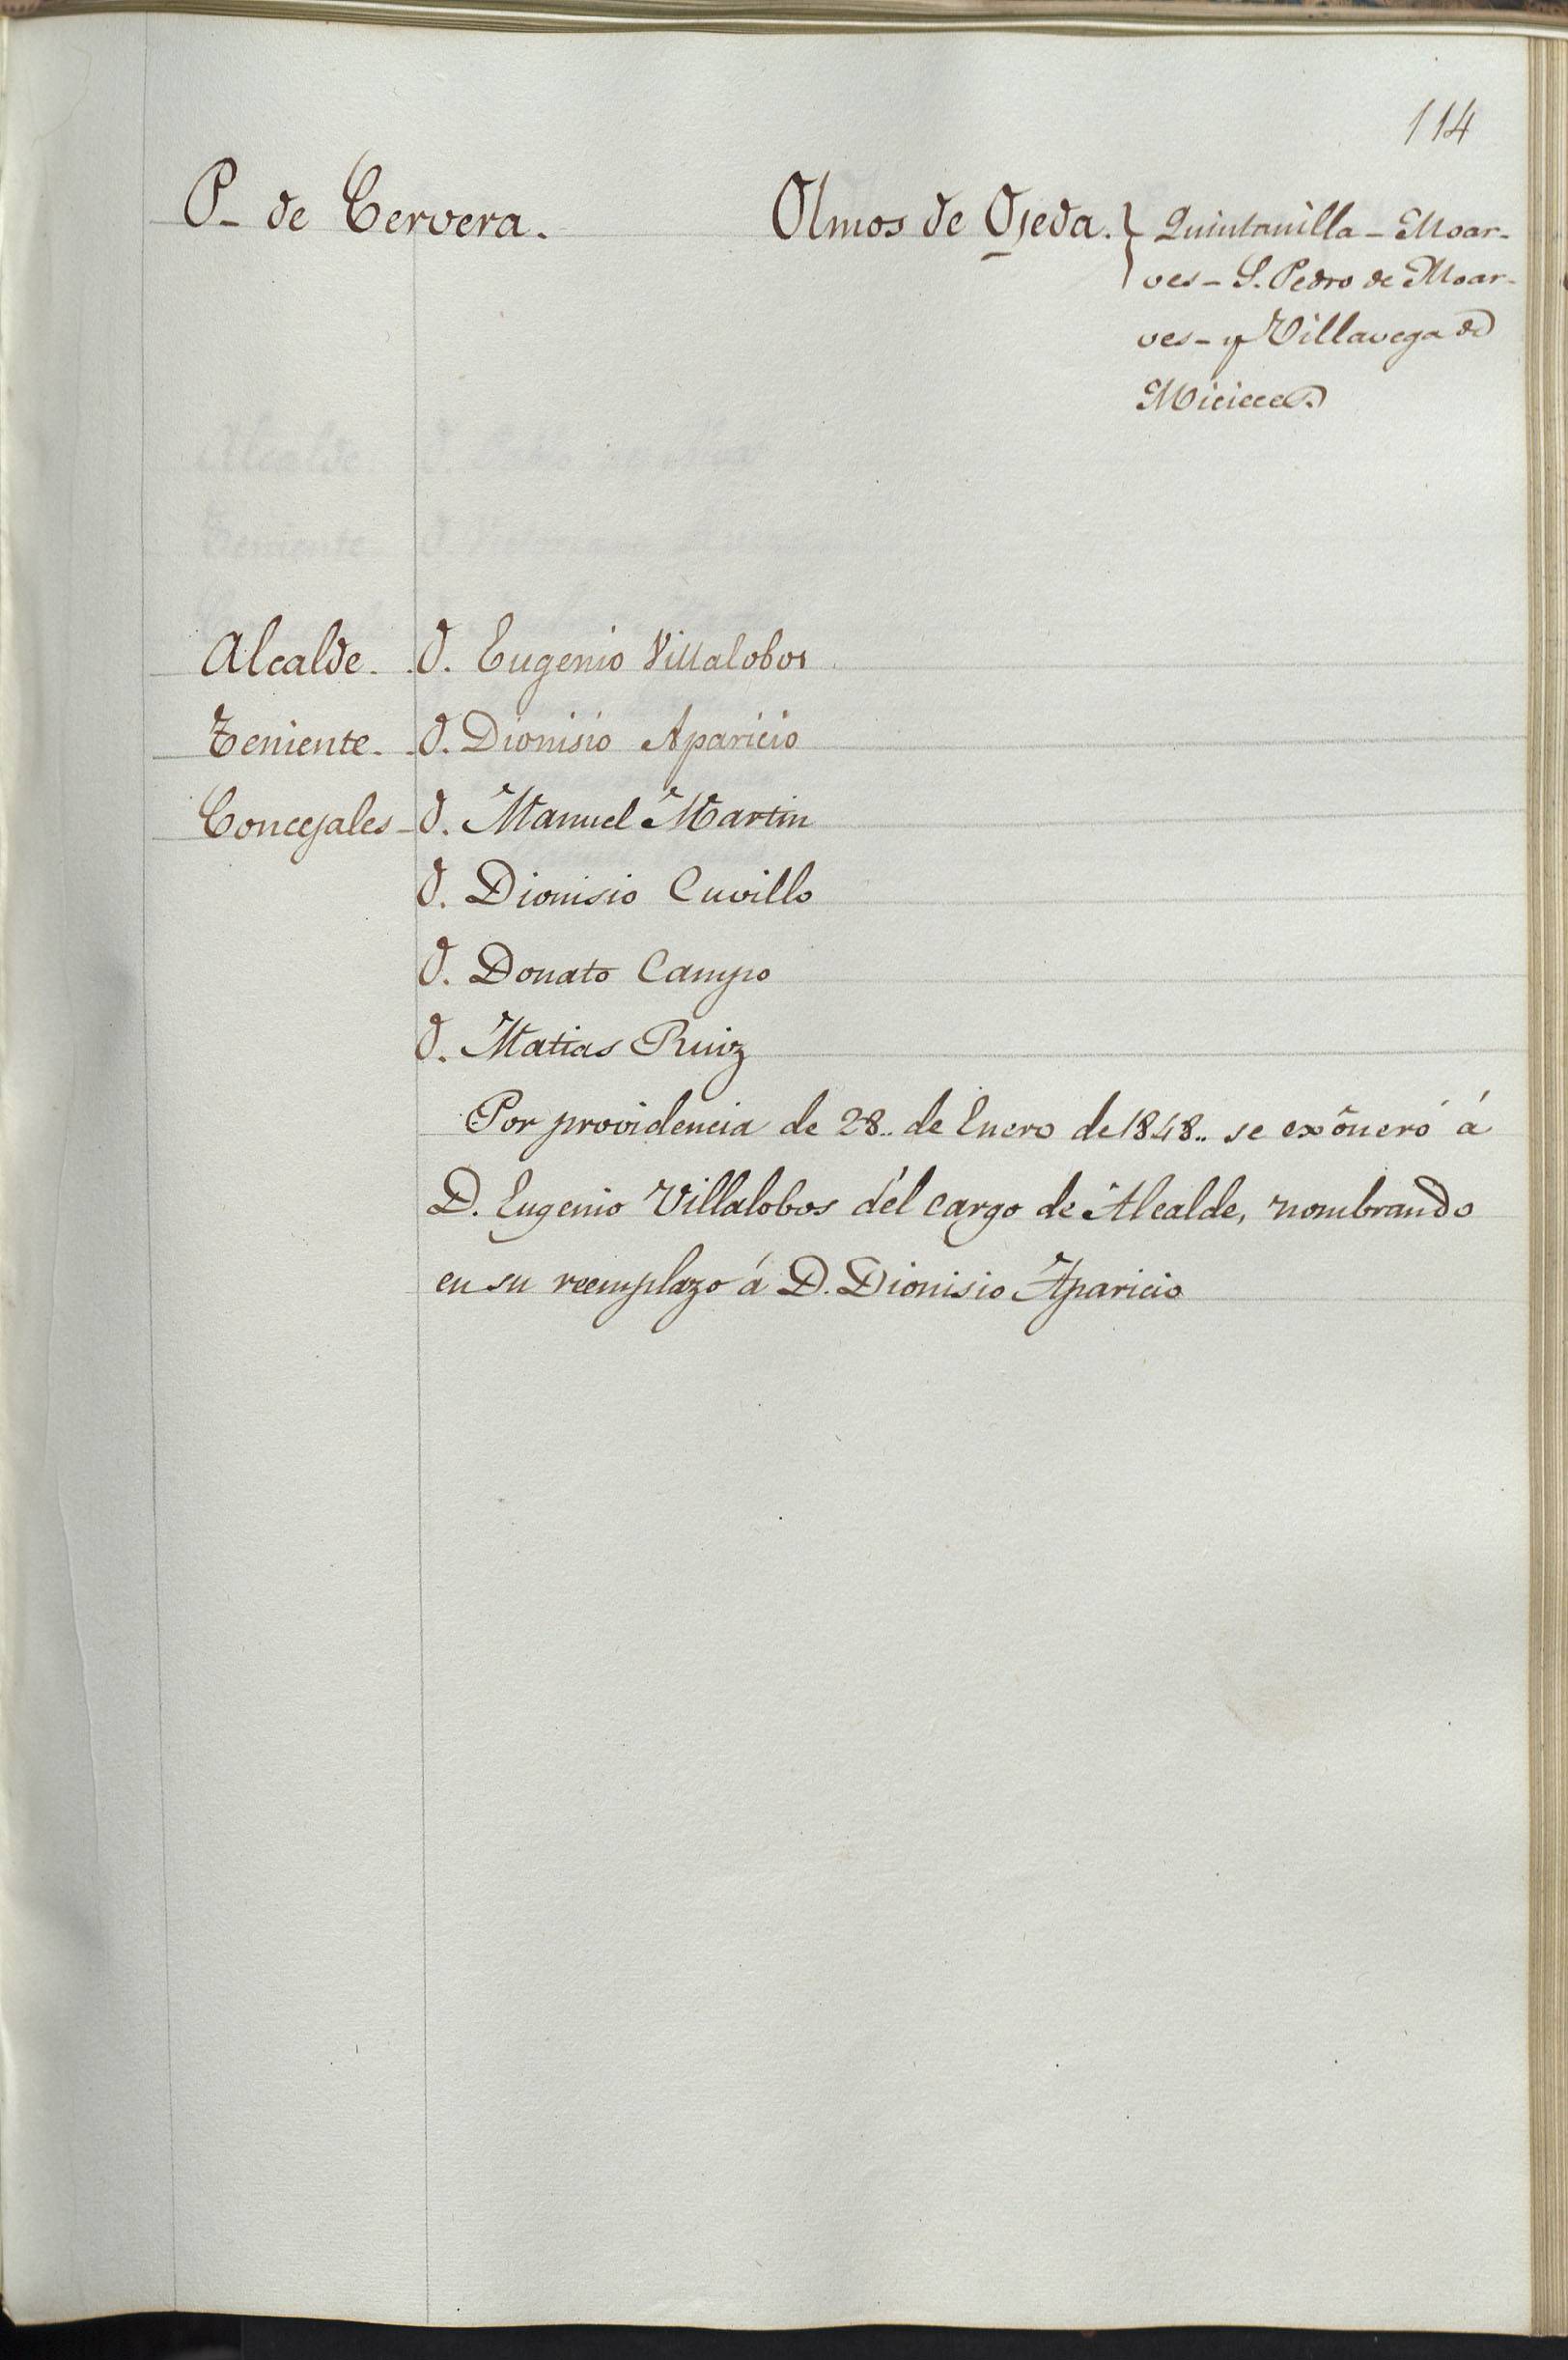 114
P_ de Cervera. Olmos de Ojeda. } Quintanilla - Moar-
ves - S. Pedro de Moar-
ves - y Villavega de
Micieces.
Alcalde D. Eugenio Villalobos
Teniente D. Dionisio Aparicio
Concejales D. Manuel Martin
D. Dionisio Cuvillo
D. Donato Campo
D. Matias Ruiz
Por providencia de 28.. de Enero de 1848.. se exôneró á
D. Eugenio Villalobos dél cargo de Alcalde, nombrando
en su reemplazo á D. Dionisio Aparicio